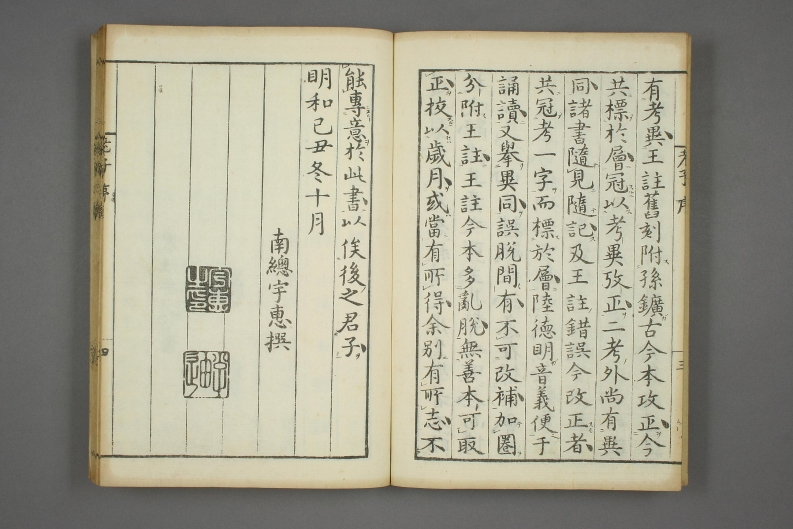 有考異王註舊刻附孫鑛古今本攷正今
共標於層冠以考異攷正二考外尚有異
同諸書隨見隨記及王註錯誤今改正者
共冠考一字而標於層陸德明音義便于
誦讀又舉異同誤脫間有不可改補加圈
分附王註王註今本多亂脫無善本可取
正挍以歲月或當有所得余別有所志不
能專意於此書以俟後之君子
明和己丑冬十月
南總宇惠撰
老子序
四